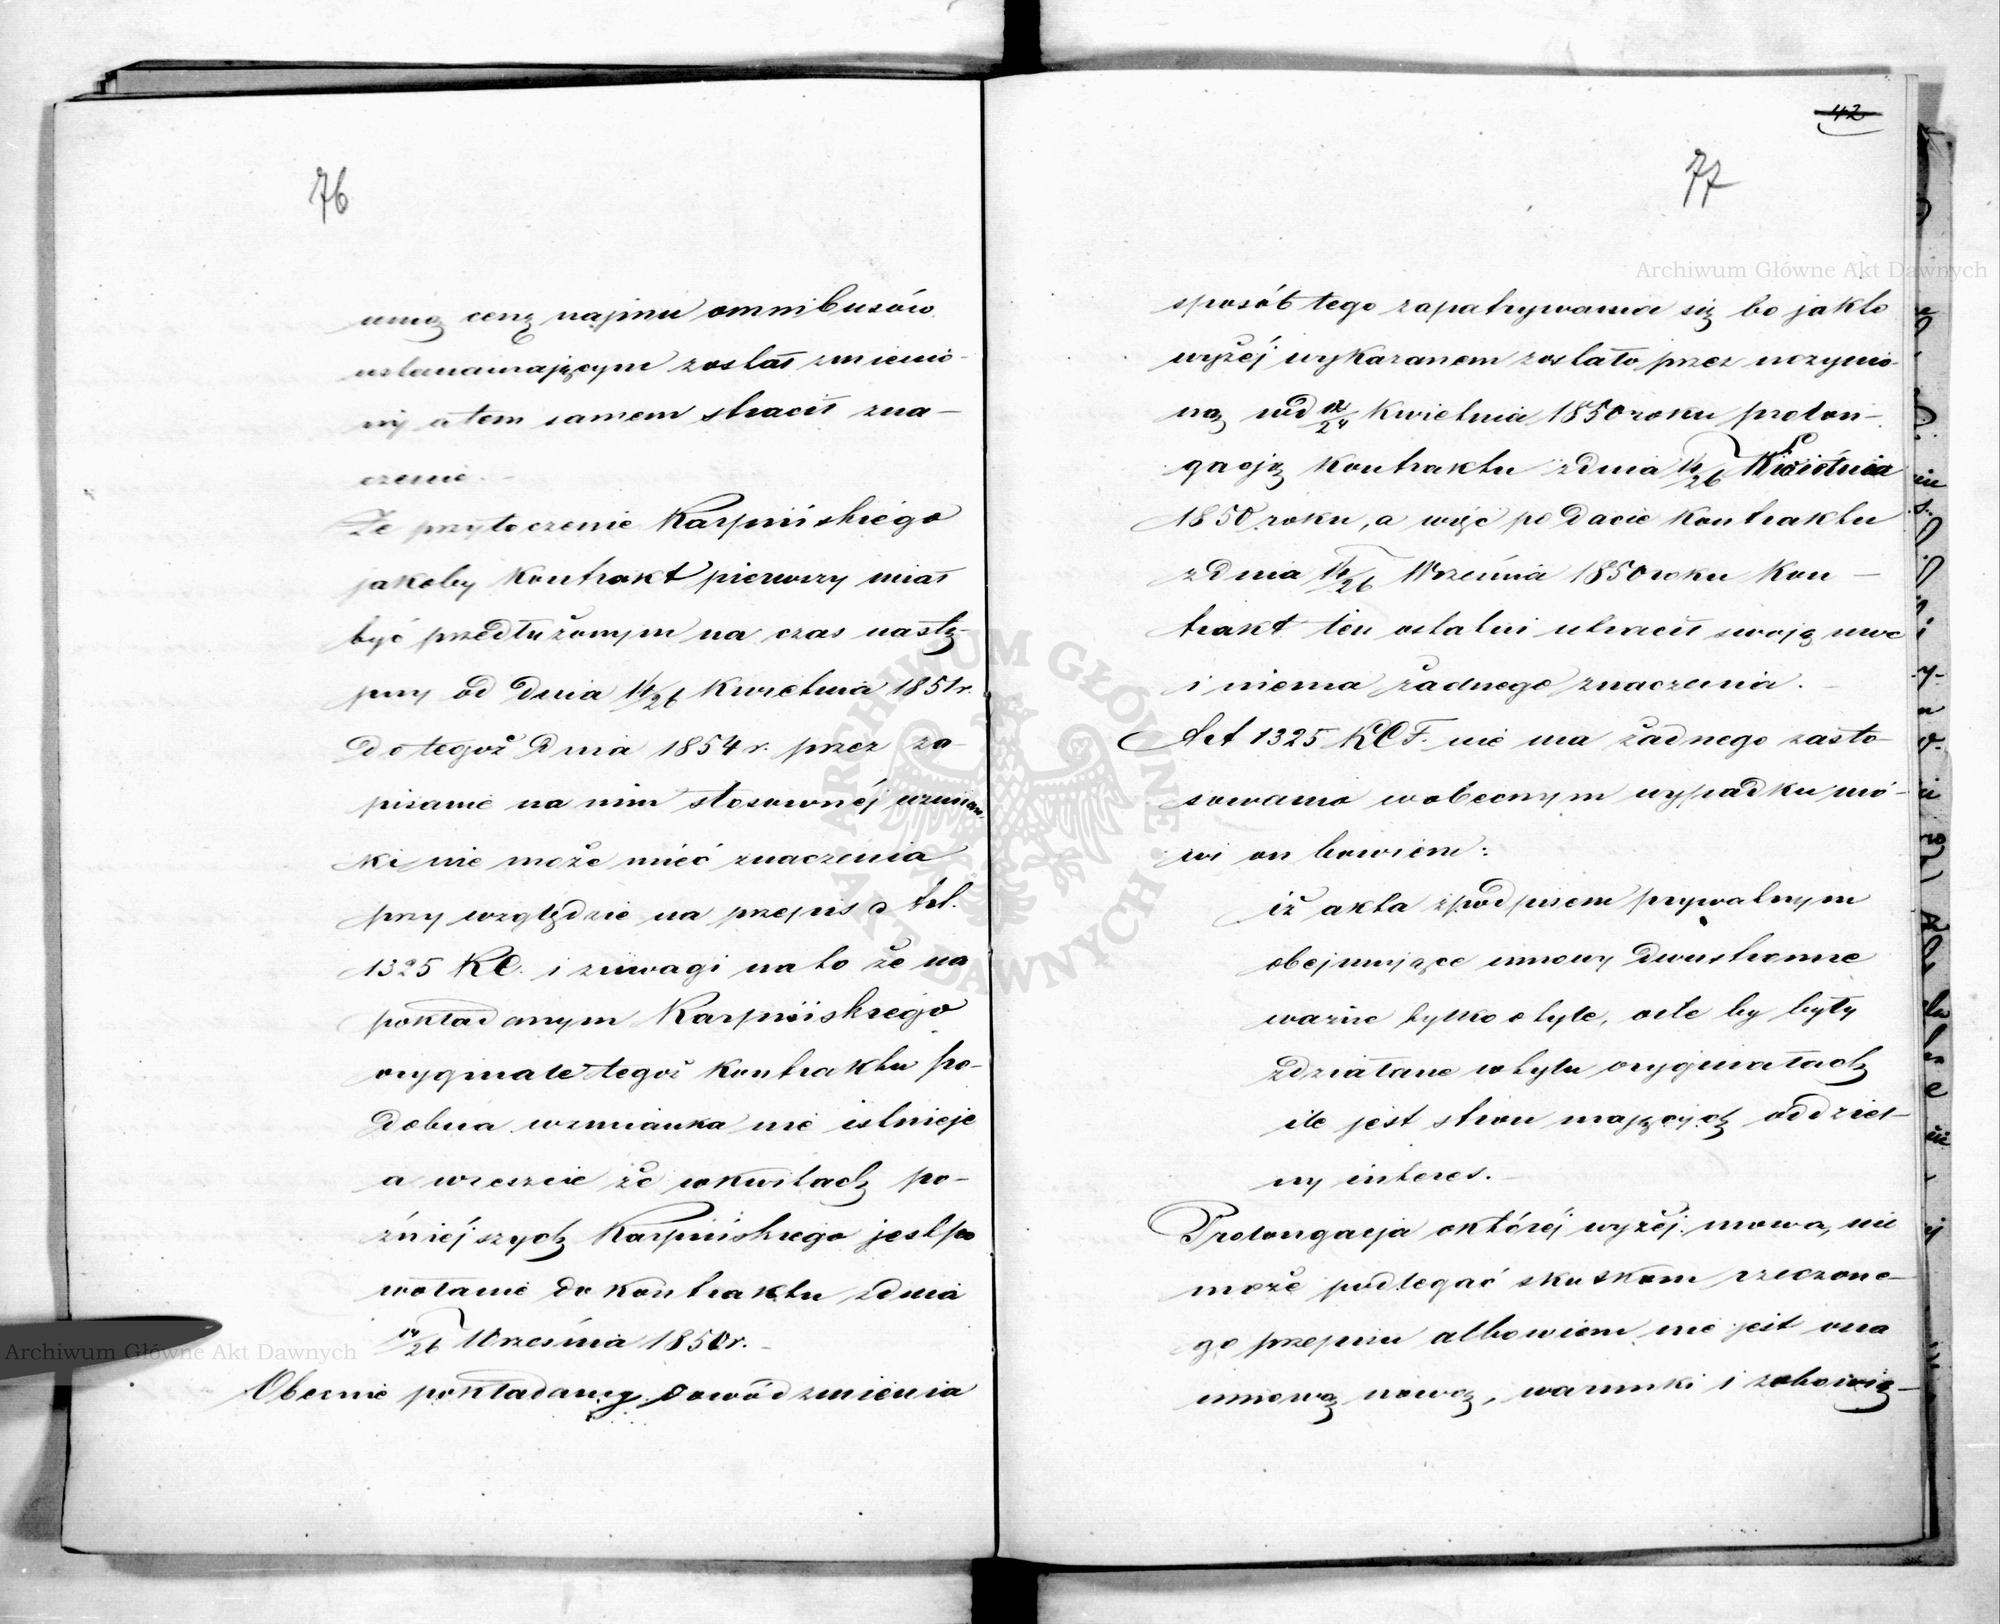 76
inną cenę najmu omnibusów
ustanawiającym został zmienio-
ny a tem samem stracił zna-
czenie. -
Że przytoczenie Karpińskiego
jakoby kontrakt pierwszy miał
być przedłużonym na czas nastę-
pny od dnia 14/26 Kwietnia 1851 r.
do tegoż dnia 1854 r. przez za-
pisanie na nim stosownéj wzmian-
ki nie może miéć znaczenia
przy względzie na przepis Art.
1325 KC. i z uwagi na to że na
pokładanym Karpińskiego
oryginale tegoż kontraktu po-
dobna wzmianka nie istnieje
a wreszcie że w kwitach po-
źniéjszych Karpińskiego jest po
wołanie do kontraktu z dnia
14/26 Września 1850 r. -
Obecnie pokładany dowód zmienia
42
77
sposób tego zapatrywania się bo jak to
wyżéj wykazanem zostało przez uczynio-
ną pod 12/24 Kwietnia 1850 roku prolon-
gacją kontraktu z dnia 14/26 Kwietnia
1850 roku, a więc po dacie kontraktu
z dnia 14/26 Września 1850 roku kon-
trakt ten ostatni utracił swoją moc
i niema żadnego znaczenia. -
Art 1325 KCF. nie ma żadnego zasto-
sowania w obecnym wypadku mó-
wi on bowiem:
iż akta z podpisem prywatnym
obejmujące umowy dwustronne
ważne tylko o tyle, o ile by były
zdziałane w tylu oryginałach
ile jest stron mających oddziel-
ny interes. -
Prolongacja o któréj wyżéj mowa, nie
może podlegać skutkom rzeczone-
go przepisu albowiem nie jest ona
umową nową, warunki i zobowią-
Archiwum Główne Akt Dawnych
Archiwum Główne Akt Dawnych
ARCHIWUM GŁÓWNE AKT DAWNYCH